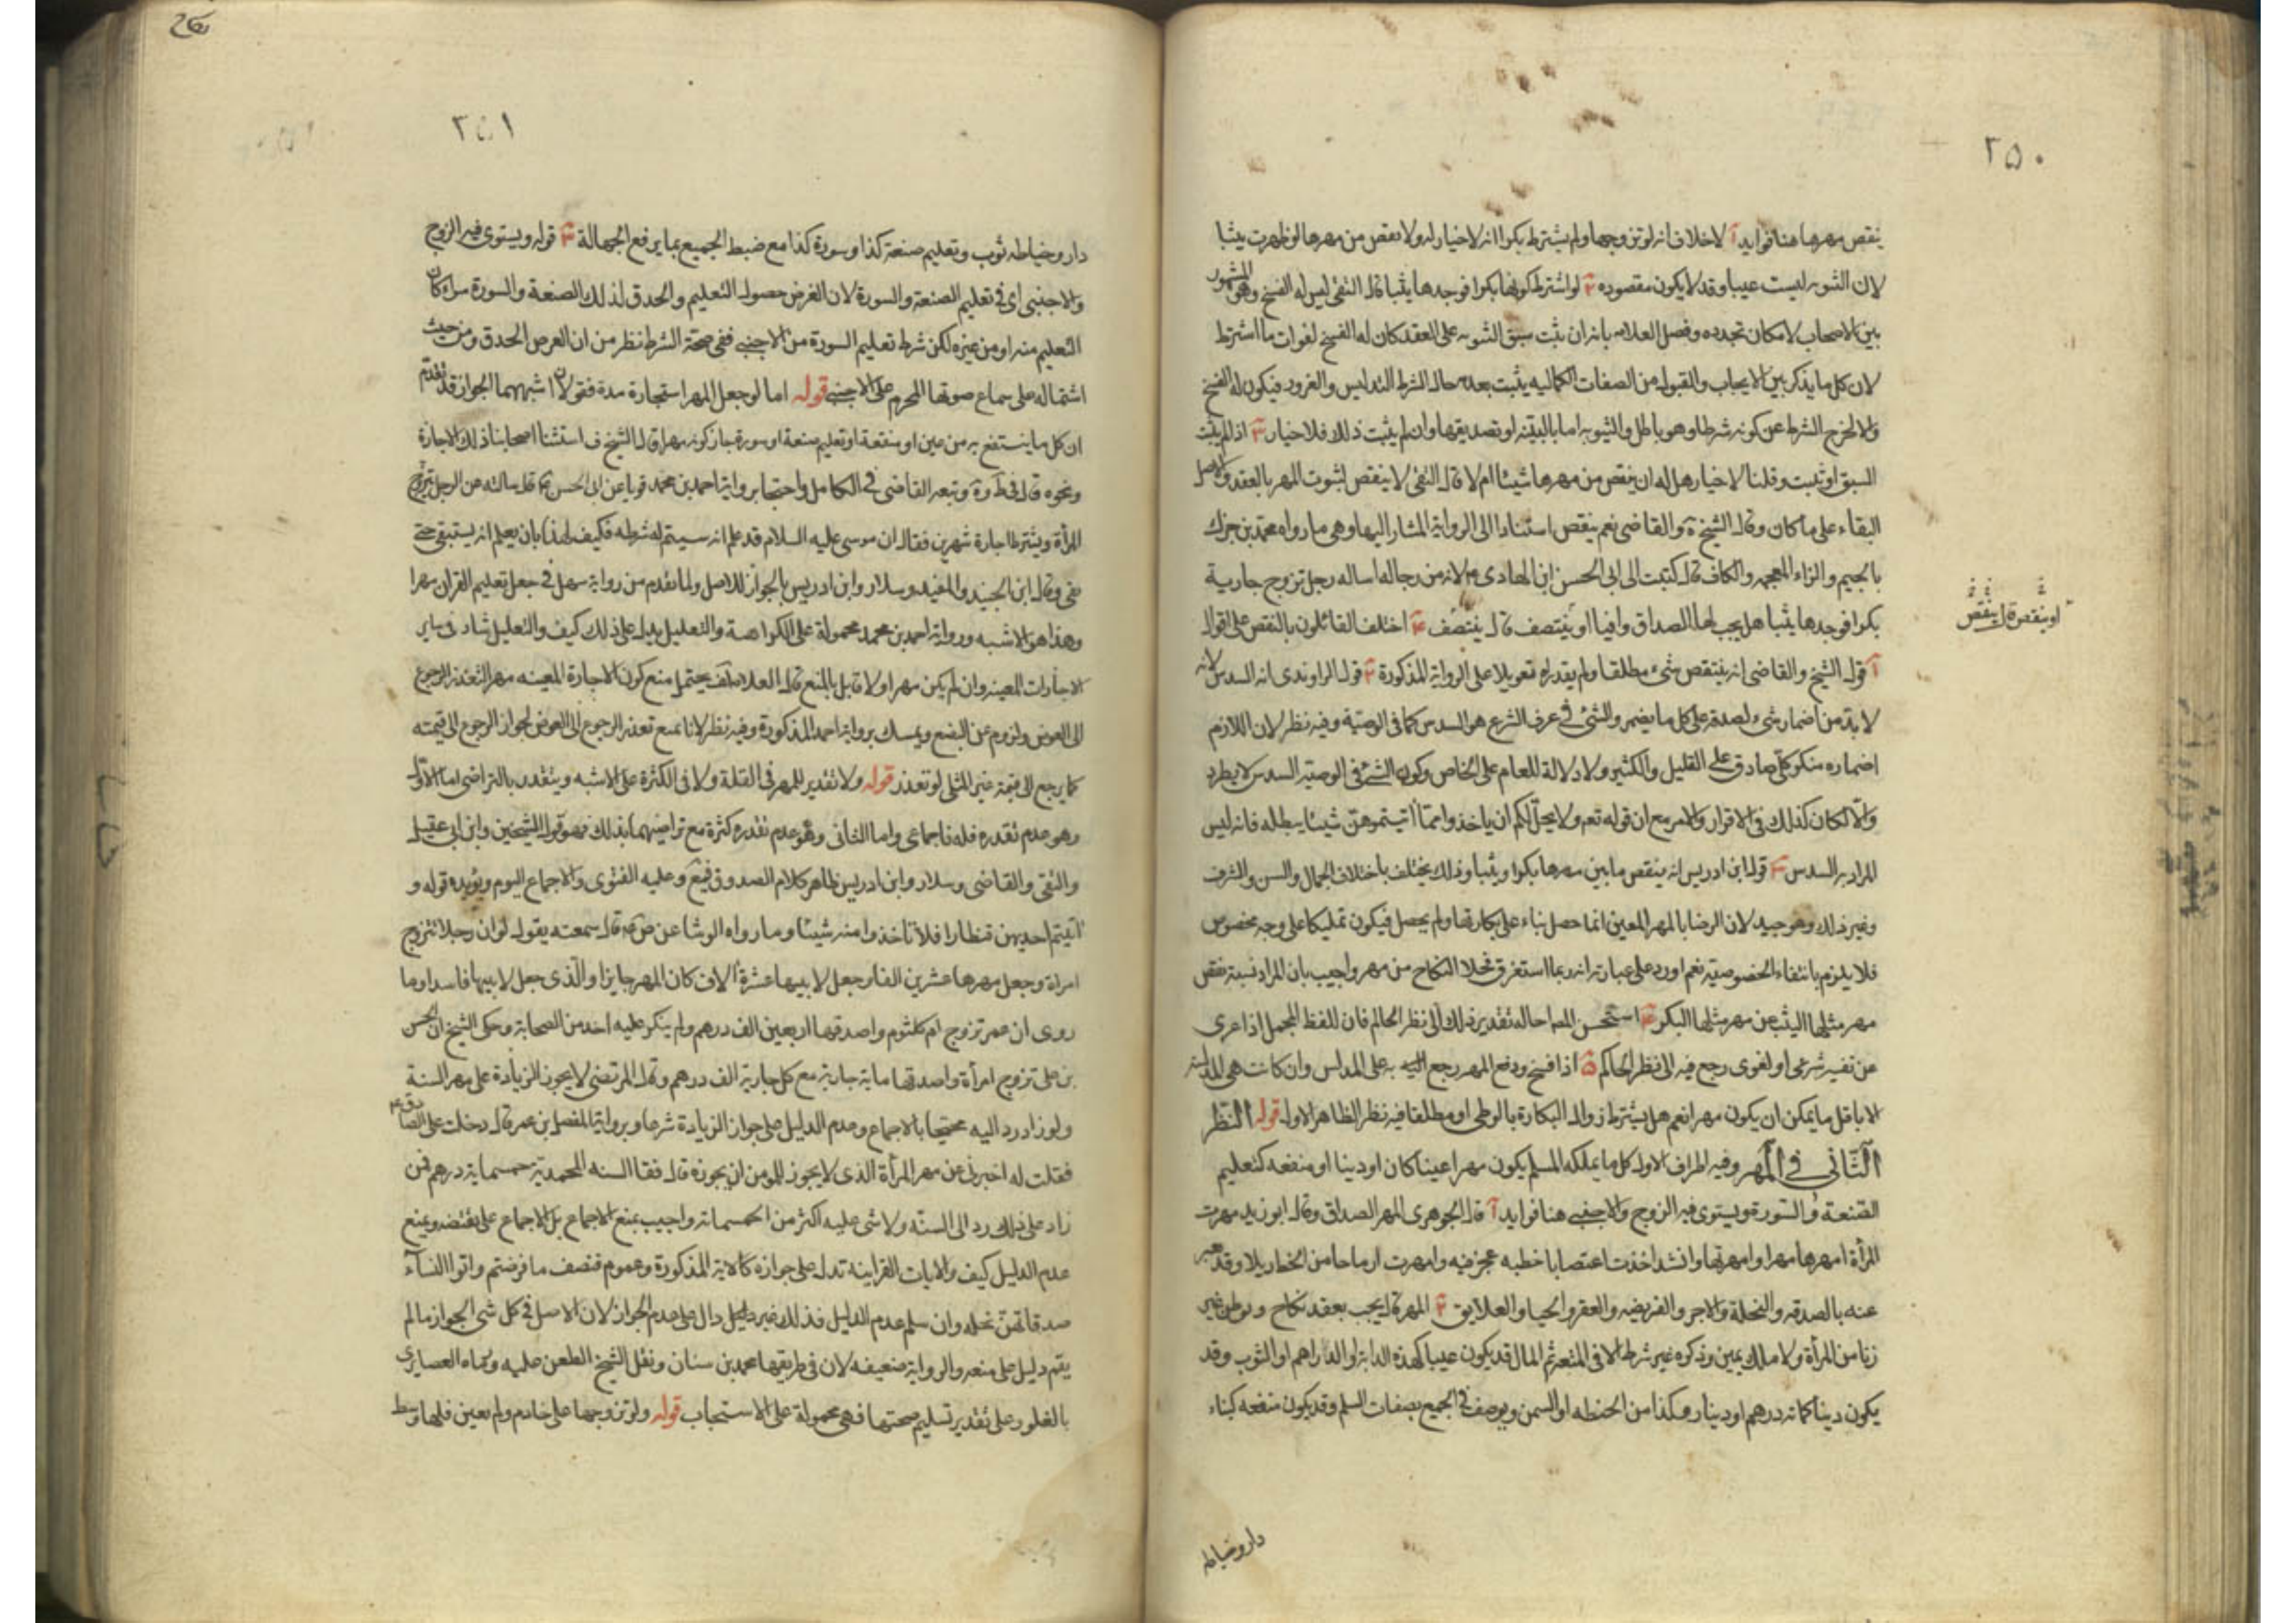 ٢٥٠
ينقص مهرها هنا فوايد آ لا خلاف انه لو تزوجها ولم يشترط بكرا انه لا خيار له ولا نقص من مهرها لو ظهرت ثيبا
لان الثيوبه ليست عيبا وقد لا يكون مقصوده ٢ لو اشترط كونها بكرا فوجدها ثيبا قال التقى ليس له الفسخ وهو المشهور
بين الاصحاب لامكان تجدده وفصل العلامه بانه ان ثبت سبق الثيوبه على العقد كان له الفسخ لفوات ما اشترط
لان كل ما يذكر بين الايجاب والقبول من الصفات الكماليه يثبت بعدمه حال الشرط التدليس والغرور فيكون له الفسخ
والا لخرج الشرط عن كونه شرطا وهو باطل والثيوبه اما بالبينه او تصديقها وان لم يثبت ذلك فلا خيار ٣ اذا لم يثبت
السبق او ثبت وقلنا لا خيار هل له ان ينقص من مهرها شيئا ام لا قال التقى لا ينقص لثبوت المهر بالعقد والاصل
البقاء على ما كان وقال الشيخ في يه والقاضى نعم ينقص استنادا الى الرواية المشار اليها وهى ما رواه محمد بن جزك
بالجيم والزاء المعجمه والكاف قال كتبت الى ابى الحسن ابن الهادى ع لانه من رجاله اساله رجل تزوج جارية
بكرا فوجدها ثيبا هل يجب لها الصداق وافيا او ينتصف قال ينتصف ٤ اختلف القائلون بالنقص على اقوال
او ينقص قال ينقص
آ قول الشيخ والقاضى انه ينتقص شىء مطلقا ولم يقدراه تعويلا على الرواية المذكورة ٢ قول الراوندى انه السدس لانه
لا بد من اضمار شىء لصدقه على كل ما يضمر والشئ في عرف الشرع هو السدس كما فى الوصية وفيه نظر لان اللازم
اضماره منكر كلى صادق على القليل والكثير ولا دلالة للعام على الخاص وكون الشئ في الوصية السدس لا يطرد
والّا لكان كذلك فى الاقرار والامر مع ان قوله تعم ولا يحل لكم ان ياخذوا مما اتيتموهن شيئا يبطله فانه ليس
المراد به السدس ٣ قول ابن ادريس انه ينقص ما بين مهرها بكرا وثيبا وذلك يختلف باختلاف الجمال والسن والشرف
وغير ذلك وهو جيد لان الرضا بالمهر المعين انما حصل بناء على بكارتها ولم يحصل فيكون تمليكا على وجه مخصوص
فلا يلزم بانتفاء الخصوصيته نعم اورد على عبارته انه ربما استغرق نخلا النكاح من مهر واجيب بان المراد نسبة نقص
مهر مثلها الثيب عن مهر مثلها البكر ٤ استحسن المص احاله تقدير ذلك الى نظر الحاكم فان اللفظ المجمل اذا عرى
عن تفسير شرعى او لغوى رجع فيه الى نظر الحاكم ٥ اذا فسخ ودفع المهر رجع به على المدلس وان كانت هى المدلسه
الا باقل ما يمكن ان يكون مهرا نعم هل يشترط زوال البكارة بالوطى او مطلقا فيه نظر الظاهر الاول قوله النظر
الثانى في المهر وفيه اطراف الاول كل ما يملكه المسلم يكون مهرا عينا كان او دينا او منفعه كتعليم
الصنعة والسورة ويستوى فيه الزوج والاجنبى هنا فوايد آ قال الجوهرى المهر الصداق وقال ابو زيد مهرت
المرأة امهرها مهرا وامهرتها وانشد اخذت اغتصابا خطبه عجرفيه وامهرت ارماحا من الخط ذبلا وقد يعبر
عنه بالصدقه والنحلة والاجر والفريضه والعقر والحبا والعلايق ٢ المهر مال يجب بعقد نكاح او وطى غير
زنا من المرأة ولا ملك يمين وذكره غير شرط الا فى المتعه ثم المال قد يكون عينا كهذه الدابة او الدراهم او الثوب وقد
يكون دينا كمائة درهم او دينار وكذا من الحنطه او السمن ويوصف في الجميع بصفات السلم وقد يكون منفعه كبناء
دار وخياطه
نكاح
٢٥١
دار وخياطه ثوب وتعليم صنعة كذا وسورة كذا مع ضبط الجميع بما يرفع الجهالة ٣ قوله ويستوى فيه الزوج
والاجنبى اى فى تعليم الصنعة والسورة لان الغرض حصول التعليم والحدق لذلك الصنعة والسورة سواء كان
التعليم منه او من غيره لكن شرط تعليم السورة من الاجنبى ففى صحة الشرط نظر من ان الغرض الحدق ومن حيث
اشتماله على سماع صوتها المحرم على الاجنبى قوله اما لو جعل المهر استجارة مدة فقولان اشبههما الجواز قد تقدم
ان كل ما ينتفع به من عين او منفعة او تعليم صنعة او سورة جاز كونه مهرا قال الشيخ ف استثنا اصحابنا ذلك الاجارة
ونحوه قال فى ط و ية وتبعه القاضى في الكامل واحتجا برواية احمد بن محمد عن ابى الحسن ع قال سالته عن الرجل يتزوج
المرأة ويشترط اجارة شهرين فقال ان موسى عليه السلام قد علم انه سيتم له شرطه فكيف لهذا بان يعلم انه يستبقى حتى
يفى وقال ابن الجنيد والمفيد وسلار وابن ادريس بالجواز للاصل ولما تقدم من رواية سهل فى جعل تعليم القران مهرا
وهذا هو الاشبه ورواية احمد بن محمد محمولة على الكراهة والتعليل يدل على ذلك كيف والتعليل شاد فى ساير
الاجارات المعينه وان لم يكن مهرا ولا قابل بالمنع قال العلامه يحتمل منع كون الاجارة المعينه مهر التعذر الرجوع
الى العوض ولزوم عن البضع ويمسك برواية احمد المذكورة وفيه نظر لانا نمنع تعذر الرجوع الى العوض لجواز الرجوع الى قيمته
كما يرجع الى قيمة غير المثلى لو تعذر قوله ولا تقدير للمهر فى القلة ولا فى الكثرة على الاشبه ويتقدر بالتراضى اما الاول
وهو عدم تقدره قله فاجماعى واما الثانى وهو عدم تقدره كثرة مع تراضيهما بذلك فهو قول الشيخين وابن ابى عقيل
والتقى والقاضى وسلار وابن ادريس وظاهر كلام الصدوق فيع وعليه الفتوى والاجماع اليوم ويؤيده قوله و
اتيتم احديهن قنطارا فلا تأخذوا منه شيئا وما رواه الوشا عن ضا ع قال سمعته يقول لو ان رجلا تزوج
امراة وجعل مهرها عشرين الفا وجعل لابيها عشرة الاف كان المهر جايزا والذى جعل لابيها فاسدا وما
روى ان عمر تزوج ام كلثوم واصدقها اربعين الف درهم ولم ينكر عليه احد من الصحابة وحكى الشيخ ان الحسن
بن على تزوج امرأة واصدقها ماية جارية مع كل جارية الف درهم وقال المرتضى لا يجوز الزيادة على مهر السنة
ولو زاد رد اليه محتجا بالاجماع وعدم الدليل على جواز الزيادة شرعا وبرواية المفضل بن عمر قال دخلت على الصادق ع
فقلت له اخبرنى عن مهر المرأة الذى لا يجوز للمومن ان يجوزه قال فقال السنه المحمدية خمسماية درهم فمن
زاد على ذلك رد الى السنّة ولا شى عليه اكثر من الخمسماته واجيب بمنع الاجماع بل الاجماع على نقيضه وبمنع
عدم الدليل كيف والايات القراينه تدل على جوازه كالاية المذكورة وعموم فنصف ما فرضتم واتوا النسآء
صدقاتهن نحله وان سلم عدم الدليل فذلك غير دليل دال على عدم الجواز لان الاصل فى كل شى الجواز ما لم
يقم دليل على منعه والرواية ضعيفه لان فى طريقها محمد بن سنان ونقل الشيخ الطعن عليه ورماه الغضايرى
بالغلو وعلى تقدير تسليم صحتها فهى محمولة على الاستحباب قوله ولو تزوجها على خادم ولم يعين فلها وسط